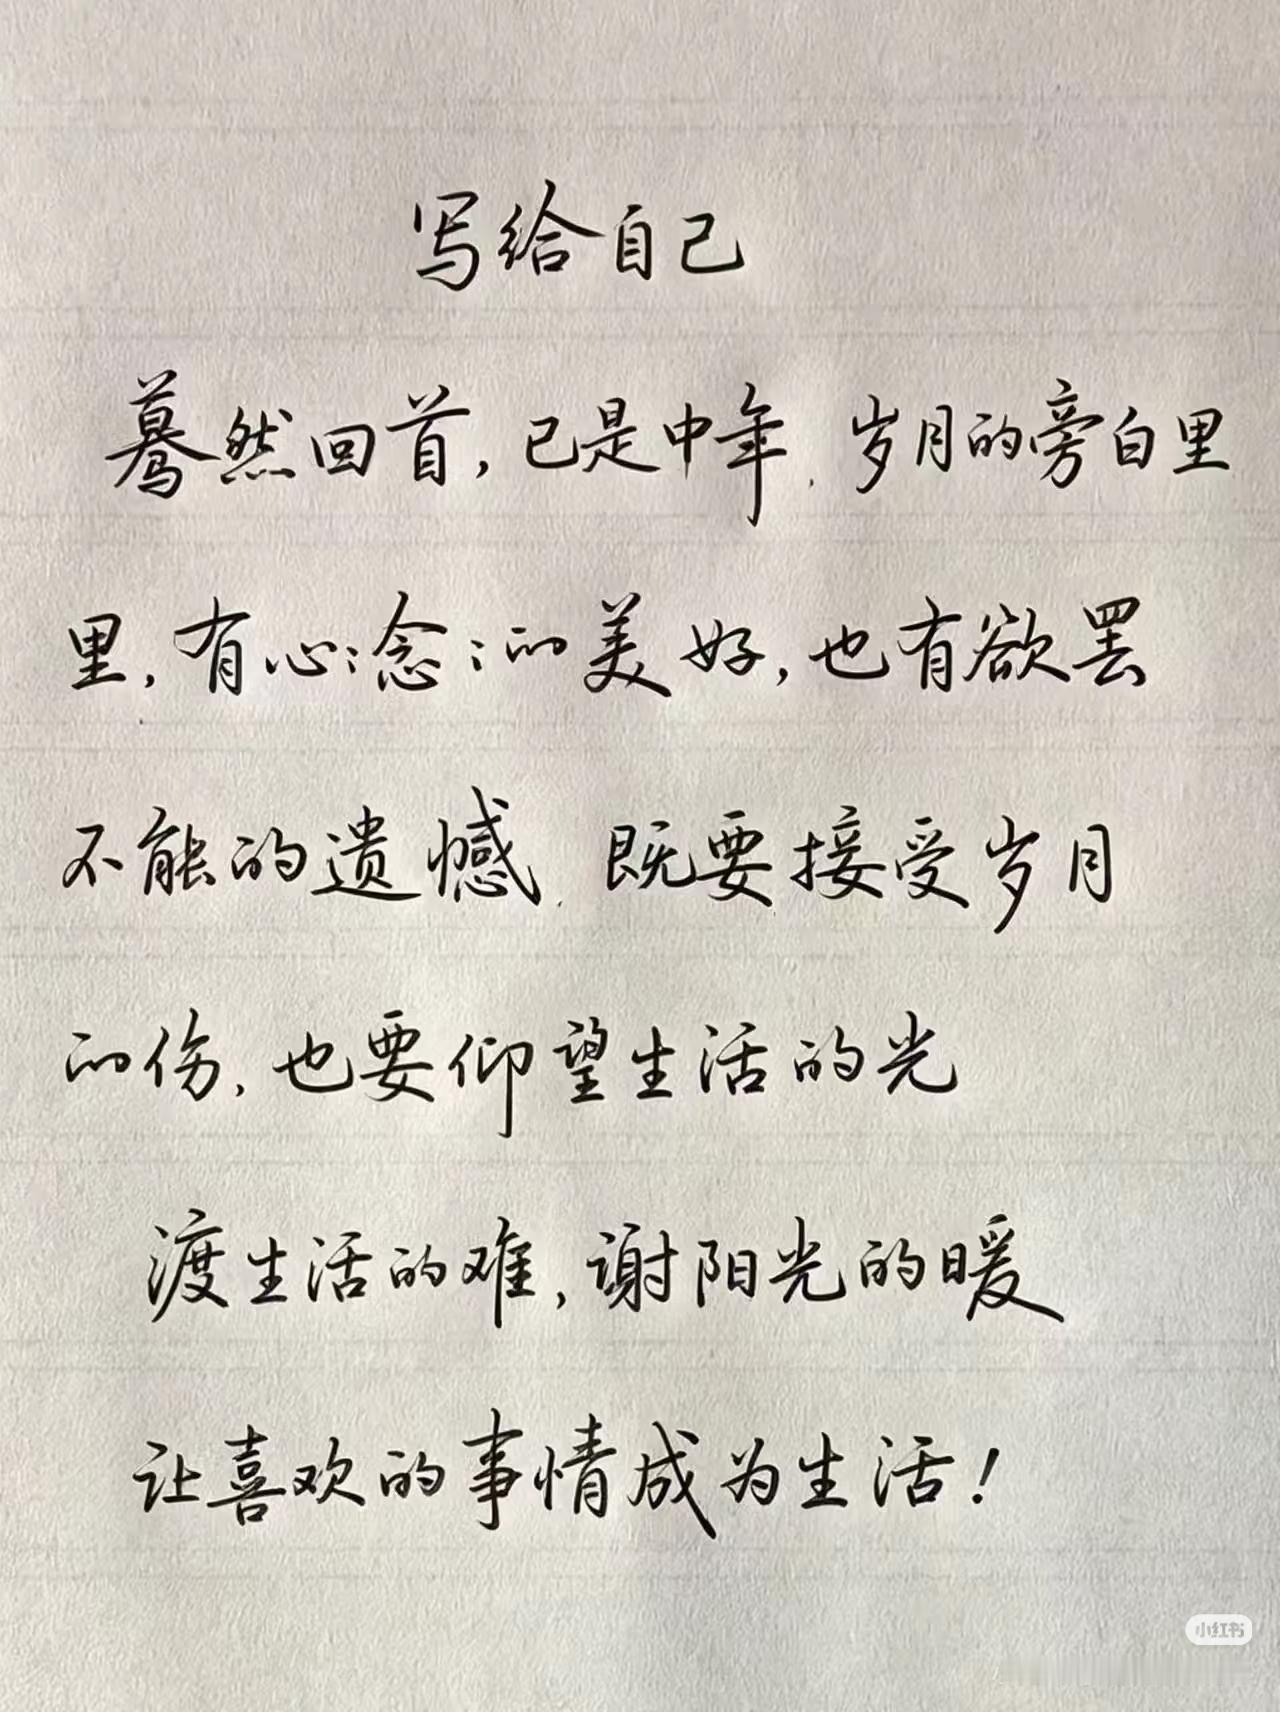 写给自己
蓦然回首,已是中年.岁月的旁白里
里,有心心念念的美好,也有欲罢
不能的遗憾.既要接受岁月
的伤,也要仰望生活的光
渡生活的难,谢阳光的暖
让喜欢的事情成为生活!
小红书